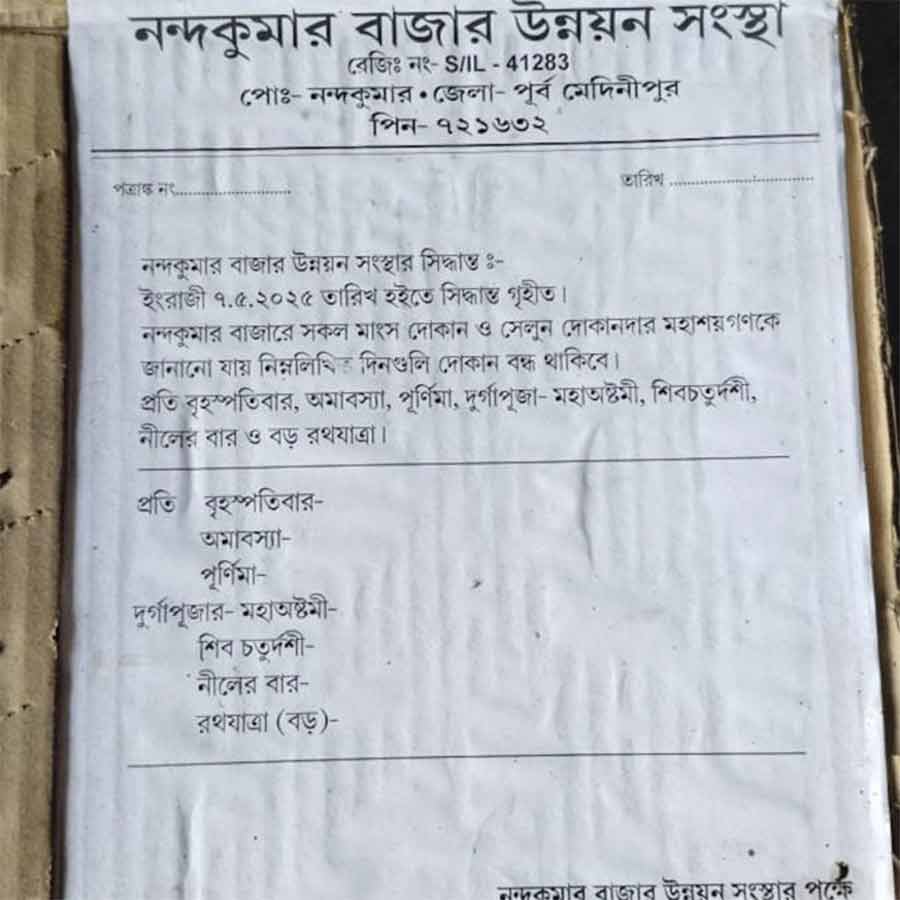 নন্দকুমার বাজার উন্নয়ন সংস্থা
রেজিঃ নং- S/IL - 41283
পোঃ- নন্দকুমার • জেলা- পূর্ব মেদিনীপুর
পিন- ৭২১৬৩২
পত্রাঙ্ক নং............................ তারিখ ................................
নন্দকুমার বাজার উন্নয়ন সংস্থার সিদ্ধান্ত ঃ-
ইংরাজী ৭.৫.২০২৫ তারিখ হইতে সিদ্ধান্ত গৃহীত।
নন্দকুমার বাজারে সকল মাংস দোকান ও সেলুন দোকানদার মহাশয়গণকে
জানানো যায় নিম্নলিখিত দিনগুলি দোকান বন্ধ থাকিবে।
প্রতি বৃহস্পতিবার, অমাবস্যা, পূর্ণিমা, দুর্গাপূজা- মহাঅষ্টমী, শিবচতুর্দশী,
নীলের বার ও বড় রথযাত্রা।
প্রতি বৃহস্পতিবার-
অমাবস্যা-
পূর্ণিমা-
দুর্গাপূজার- মহাঅষ্টমী-
শিব চতুর্দশী-
নীলের বার-
রথযাত্রা (বড়)-
নন্দকুমার বাজার উন্নয়ন সংস্থার পক্ষে